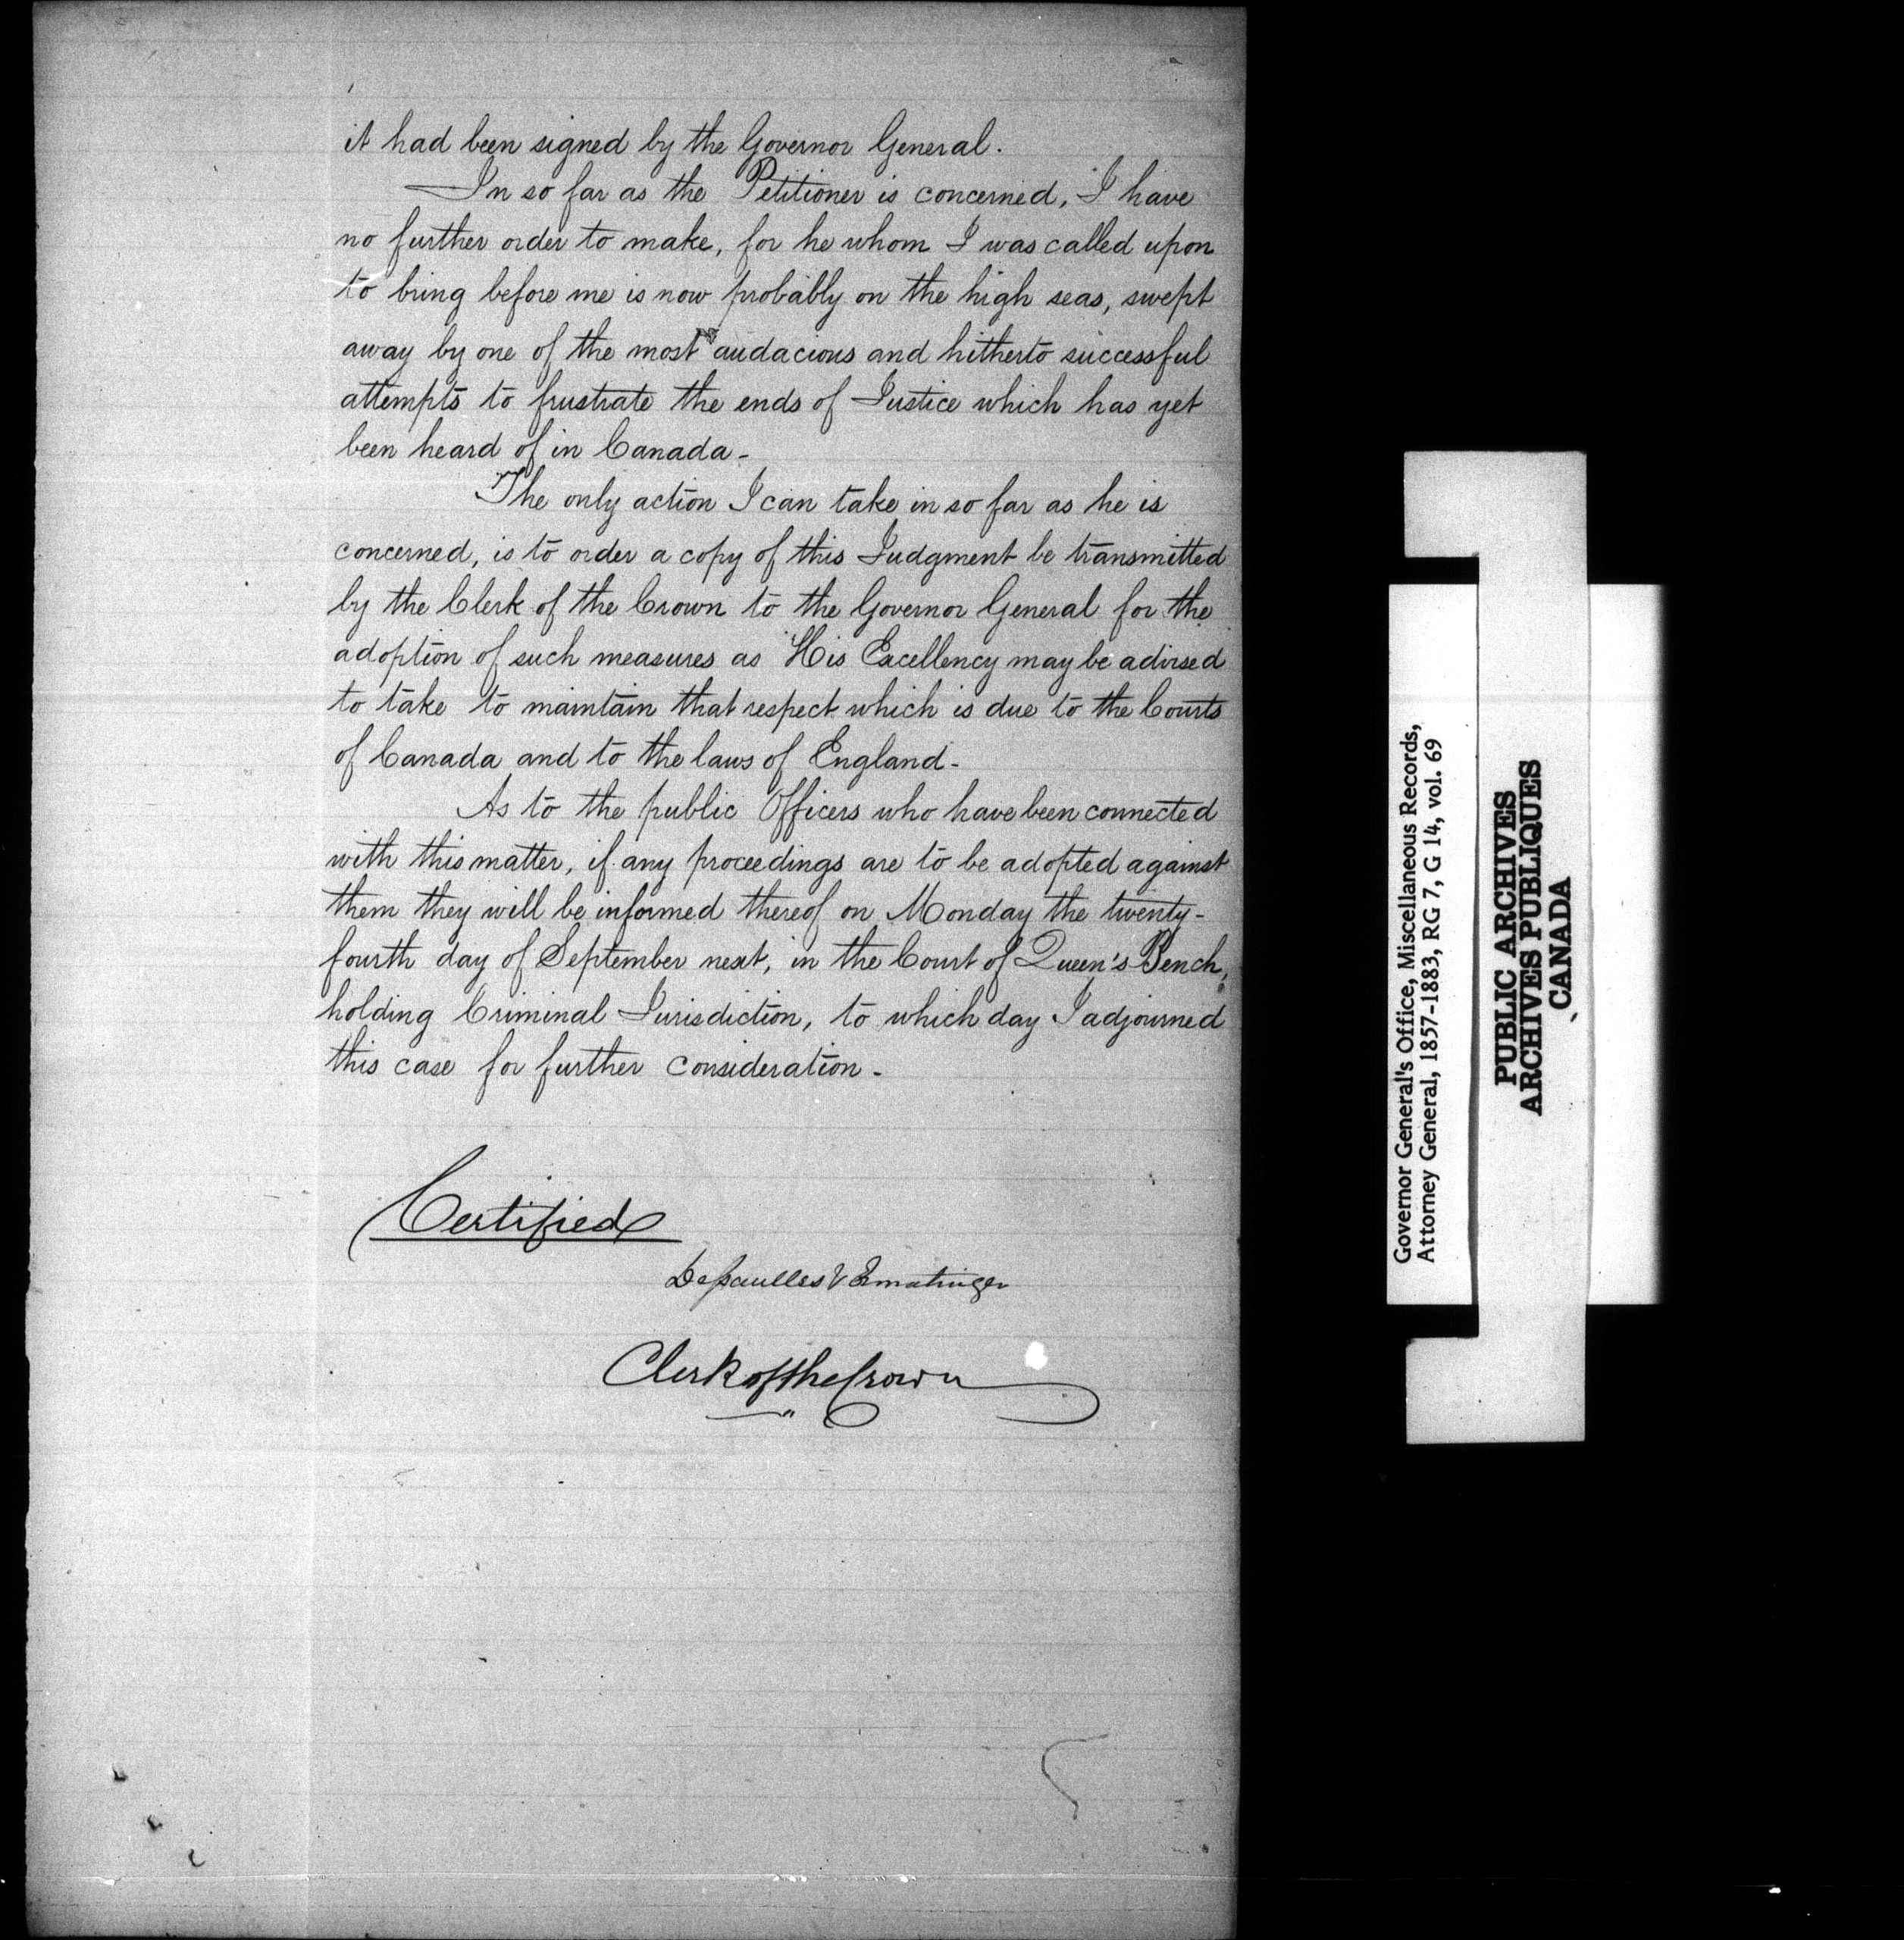 it had been signed by the Governor General.
In so far as the Petitioner is concerned, I have
no further order to make, for he whom I was called upon
to bring before me is now probably on the high seas, swept
away by one of the most audacious and hitherto successful
attempts to frustrate the ends of Justice which has yet
been heard of in Canada -
The only action I can take in so far as he is
concerned, is to order a copy of this Judgment be transmitted
by the Clerk of the Crown to the Governor General for the
adoption of such measures as His Excellency may be advised
to take to maintain that respect which is due to the Courts
of Canada and to the laws of England -
As to the public Officers who have been connected
with this matter, if any proceedings are to be adopted against
them they will be informed thereof on Monday the twenty-
fourth day of September next, in the Court of Queen's Bench,
holding Criminal Jurisdiction, to which day I adjourned
this case for further consideration -
Certified
Dessaulles & Ermatinger
Clerk of the Crown
Governor General's Office, Miscellaneous Records,
Attorney General, 1857-1883, RG 7, G 14, vol. 69
PUBLIC ARCHIVES
ARCHIVES PUBLIQUES
CANADA